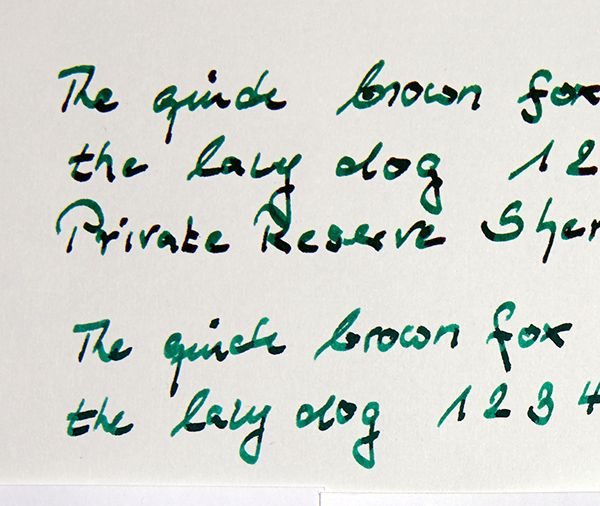 The quick brown fox
the lazy dog 1 2
Private Reserve Sher
The quick brown fox
the lazy dog 1 2 3 4